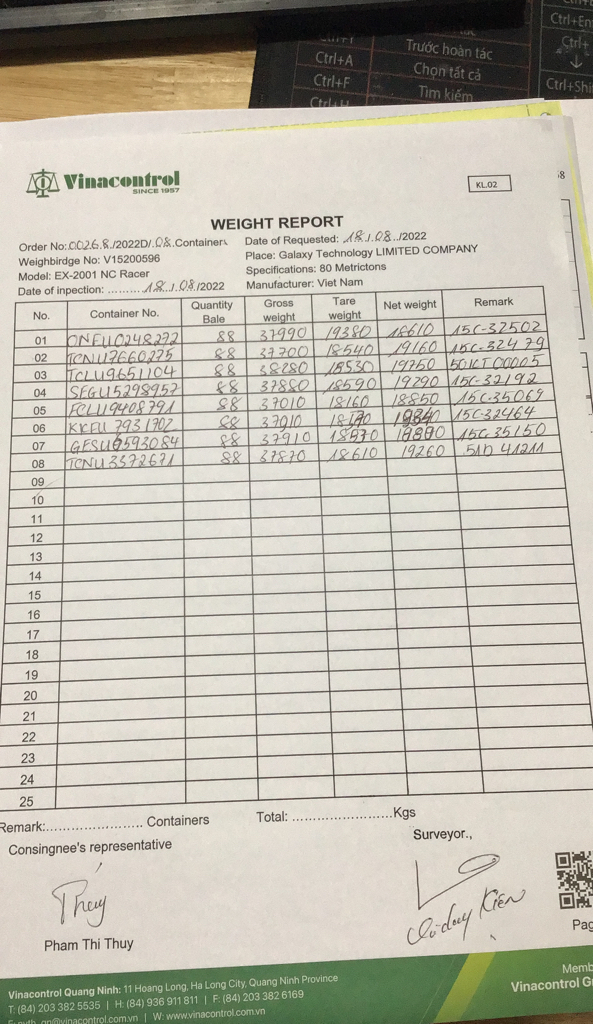 Ctrl+En
Ctrl+Y
Trước hoàn tác
Ctrl+
Ctrl+A
Chọn tất cả
Ctrl+F
Tìm kiếm
Ctrl+Shi
Ctrl+H
Vinacontrol
SINCE 1957
KL.02
WEIGHT REPORT
Order No: 0026.8./2022D/.08.Containers Date of Requested: 18./.08../2022
Weighbirdge No: V15200596 Place: Galaxy Technology LIMITED COMPANY
Model: EX-2001 NC Racer Specifications: 80 Metrictons
Date of inpection: .........18./.08./2022 Manufacturer: Viet Nam
No. Container No. Quantity Bale Gross weight Tare weight Net weight Remark
01 ONEU0248272 88 37990 19380 18610 15C-32502
02 TCNU7660275 88 37700 18540 19160 15C-32479
03 TCLU9651104 88 38280 18530 19750 50KT00005
04 SEGU5298957 88 37880 18590 19290 15C-32192
05 FCLU9408791 88 37010 18160 18850 15C-35069
06 KKFU 7931702 88 15C-32464
07 GESU6593084 88 37910 15C-35150
08 TCNU3572671 88 37870 18610 19260 51D 41211
09
10
11
12
13
14
15
16
17
18
19
20
21
22
23
24
25
Remark:...................... Containers Total: .......................Kgs
Consingnee's representative Surveyor.,
Thuy
Pham Thi Thuy
Pag
Vinacontrol Quang Ninh: 11 Hoang Long, Ha Long City, Quang Ninh Province
T: (84) 203 382 5535 | H: (84) 936 911 811 | F: (84) 203 382 6169
W: www.vinacontrol.com.vn
Memb
Vinacontrol G